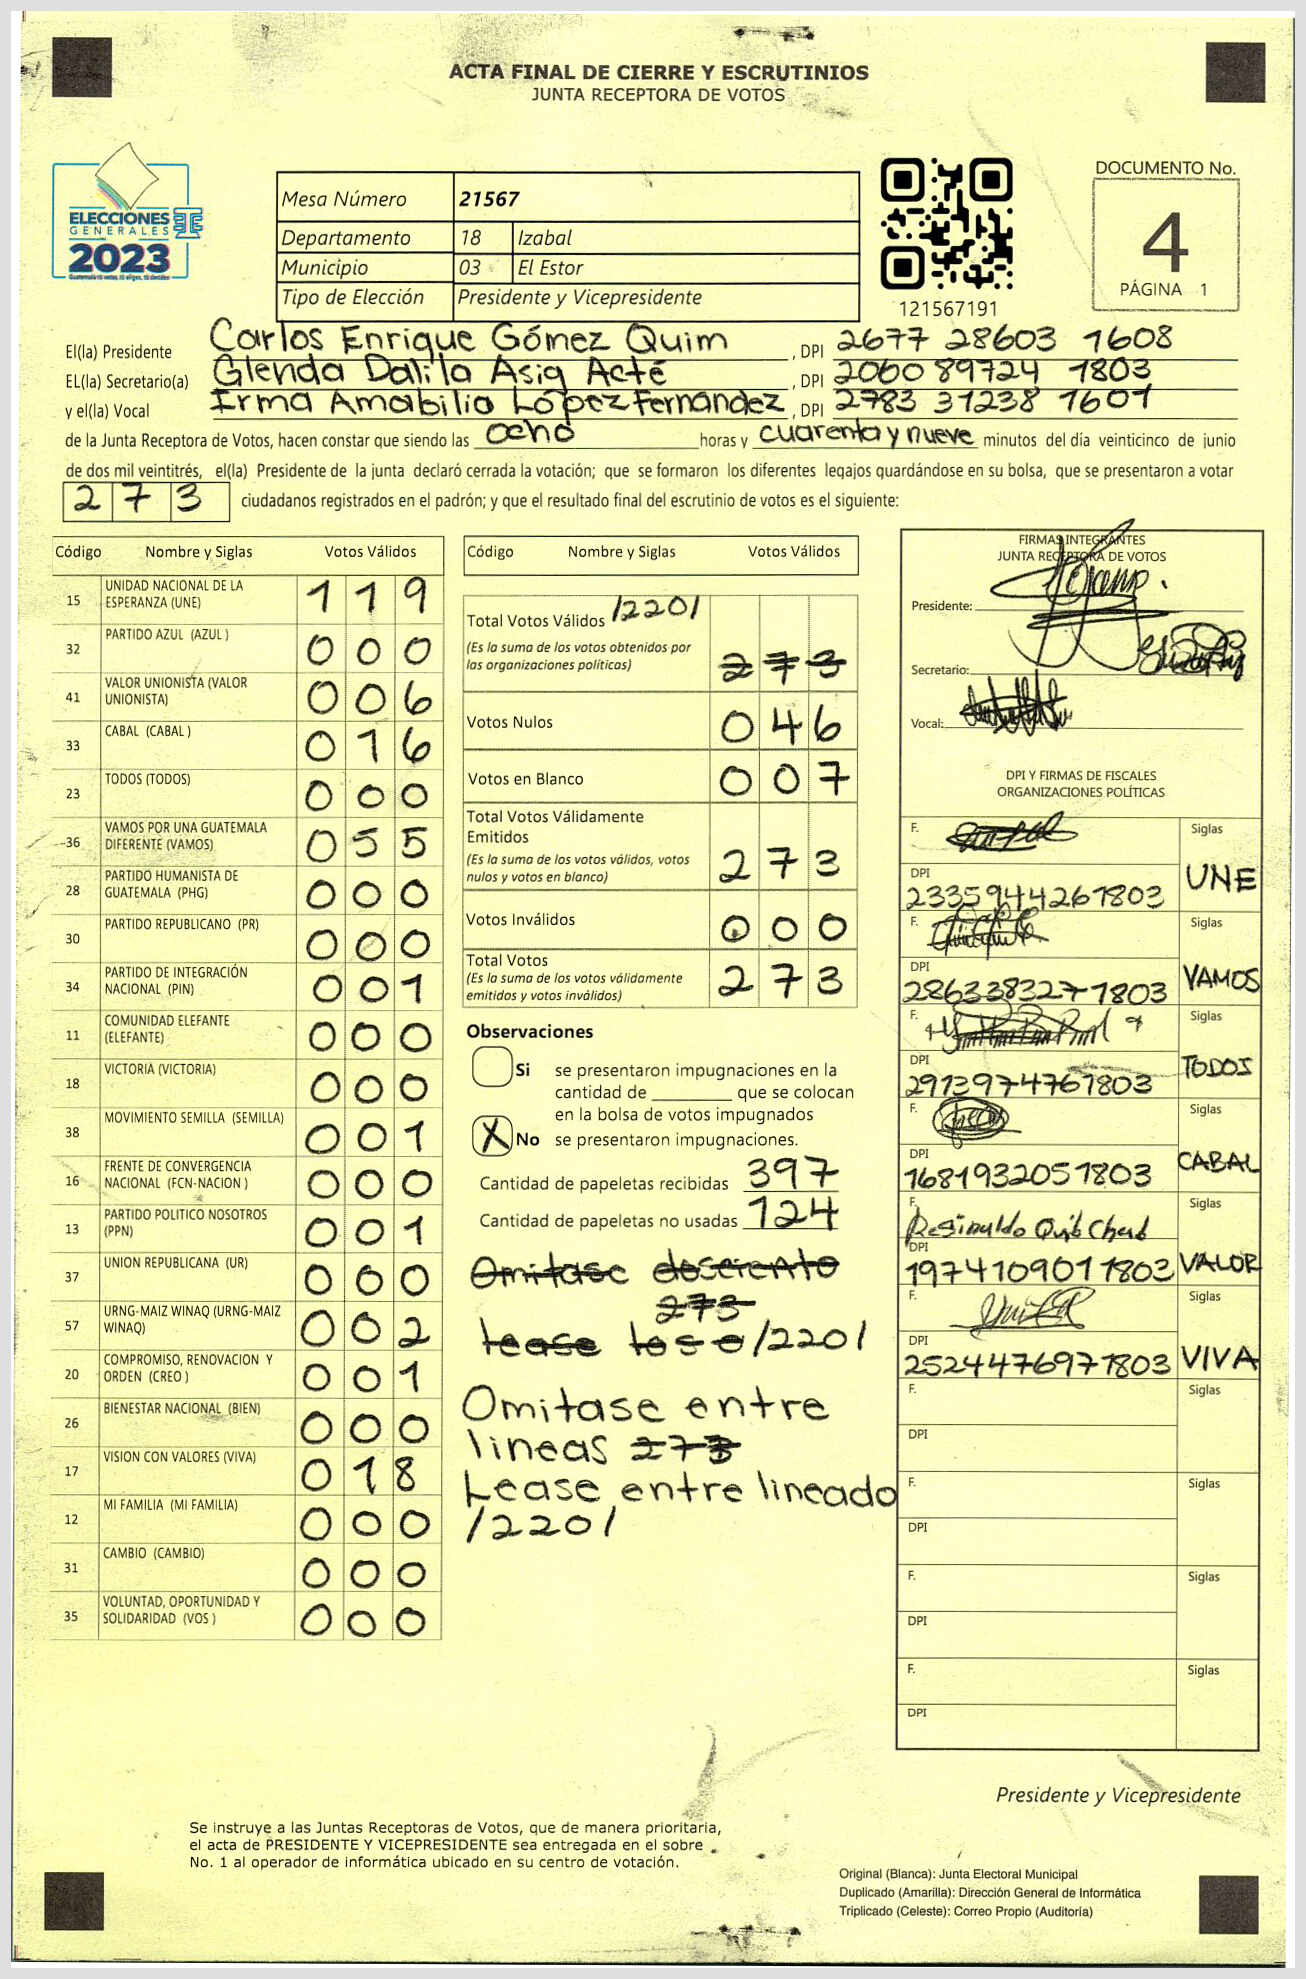 ACTA FINAL DE CIERRE Y ESCRUTINIOS
JUNTA RECEPTORA DE VOTOS
ELECCIONES
GENERALES
2023
Mesa Número 21567
Departamento 18 Izabal
Municipio 03 El Estor
Tipo de Elección Presidente y Vicepresidente
121567191
DOCUMENTO No.
4
PÁGINA 1
El(la) Presidente Carlos Enrique Gómez Quim, DPI 2677 28603 1608
EL(la) Secretario(a) Glenda Dalila Asig Acté, DPI 2060 89724 1803
y el(la) Vocal Irma Amabilia López Fernández, DPI 2783 31238 1601
de la Junta Receptora de Votos, hacen constar que siendo las ocho horas y cuarenta y nueve minutos del día veinticinco de junio
de dos mil veintitrés, el(la) Presidente de la junta declaró cerrada la votación; que se formaron los diferentes legajos guardándose en su bolsa, que se presentaron a votar
273 ciudadanos registrados en el padrón; y que el resultado final del escrutinio de votos es el siguiente:
Código Nombre y Siglas Votos Válidos
15 UNIDAD NACIONAL DE LA ESPERANZA (UNE) 119
32 PARTIDO AZUL (AZUL ) 000
41 VALOR UNIONISTA (VALOR UNIONISTA) 006
33 CABAL (CABAL ) 016
23 TODOS (TODOS) 000
36 VAMOS POR UNA GUATEMALA DIFERENTE (VAMOS) 055
28 PARTIDO HUMANISTA DE GUATEMALA (PHG) 000
30 PARTIDO REPUBLICANO (PR) 000
34 PARTIDO DE INTEGRACIÓN NACIONAL (PIN) 001
11 COMUNIDAD ELEFANTE (ELEFANTE) 000
18 VICTORIA (VICTORIA) 000
38 MOVIMIENTO SEMILLA (SEMILLA) 001
16 FRENTE DE CONVERGENCIA NACIONAL (FCN-NACION ) 000
13 PARTIDO POLITICO NOSOTROS (PPN) 001
37 UNION REPUBLICANA (UR) 000
57 URNG-MAIZ WINAQ (URNG-MAIZ WINAQ) 002
20 COMPROMISO, RENOVACION Y ORDEN (CREO ) 001
26 BIENESTAR NACIONAL (BIEN) 000
17 VISION CON VALORES (VIVA) 018
12 MI FAMILIA (MI FAMILIA) 000
31 CAMBIO (CAMBIO) 000
35 VOLUNTAD, OPORTUNIDAD Y SOLIDARIDAD (VOS ) 000
Código Nombre y Siglas Votos Válidos
Total Votos Válidos /220/
(Es la suma de los votos obtenidos por
las organizaciones políticas) 273
Votos Nulos 046
Votos en Blanco 007
Total Votos Válidamente
Emitidos
(Es la suma de los votos válidos, votos
nulos y votos en blanco) 273
Votos Inválidos 000
Total Votos
(Es la suma de los votos válidamente
emitidos y votos inválidos) 273
Observaciones
Si se presentaron impugnaciones en la
cantidad de ________ que se colocan
en la bolsa de votos impugnados
X No se presentaron impugnaciones.
Cantidad de papeletas recibidas 397
Cantidad de papeletas no usadas 124
Omitase dosciento
273
lease los /220/
Omitase entre
lineas 273
Lease entre lineado
/220/
FIRMAS INTEGRANTES
JUNTA RECEPTORA DE VOTOS
Presidente:
Secretario:
Vocal:
DPI Y FIRMAS DE FISCALES
ORGANIZACIONES POLÍTICAS
F. Siglas
DPI 2335944261803 UNE
F. Siglas
DPI 2863383271803 VAMOS
F. Siglas
DPI 2913974761803 TODOS
F. Siglas
DPI 1681932051803 CABAL
F. Reginaldo Quib Siglas
DPI 1974109011803 VALOR
F. Siglas
DPI 2524476971803 VIVA
F. Siglas
DPI
F. Siglas
DPI
F. Siglas
DPI
F. Siglas
DPI
Presidente y Vicepresidente
Se instruye a las Juntas Receptoras de Votos, que de manera prioritaria,
el acta de PRESIDENTE Y VICEPRESIDENTE sea entregada en el sobre
No. 1 al operador de informática ubicado en su centro de votación.
Original (Blanca): Junta Electoral Municipal
Duplicado (Amarilla): Dirección General de Informática
Triplicado (Celeste): Correo Propio (Auditoría)